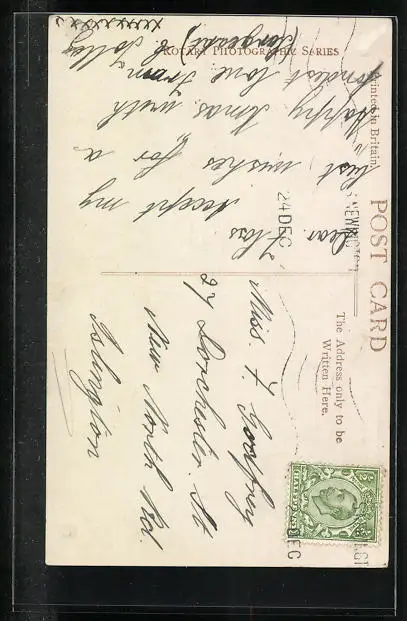 POST CARD
Printed in Britain
ROTARY PHOTOGRAPHIC SERIES
The Address only to be
Written Here.
24 DEC
Dear Floss
Accept my
best wishes for a
"Happy Xmas" with
fondest love from
(Sargeant) Solley
xxxxxxxx
Miss. F. Godfrey
27 Dorchester. St
New North Rd.
Islington
HALFPENNY
EC